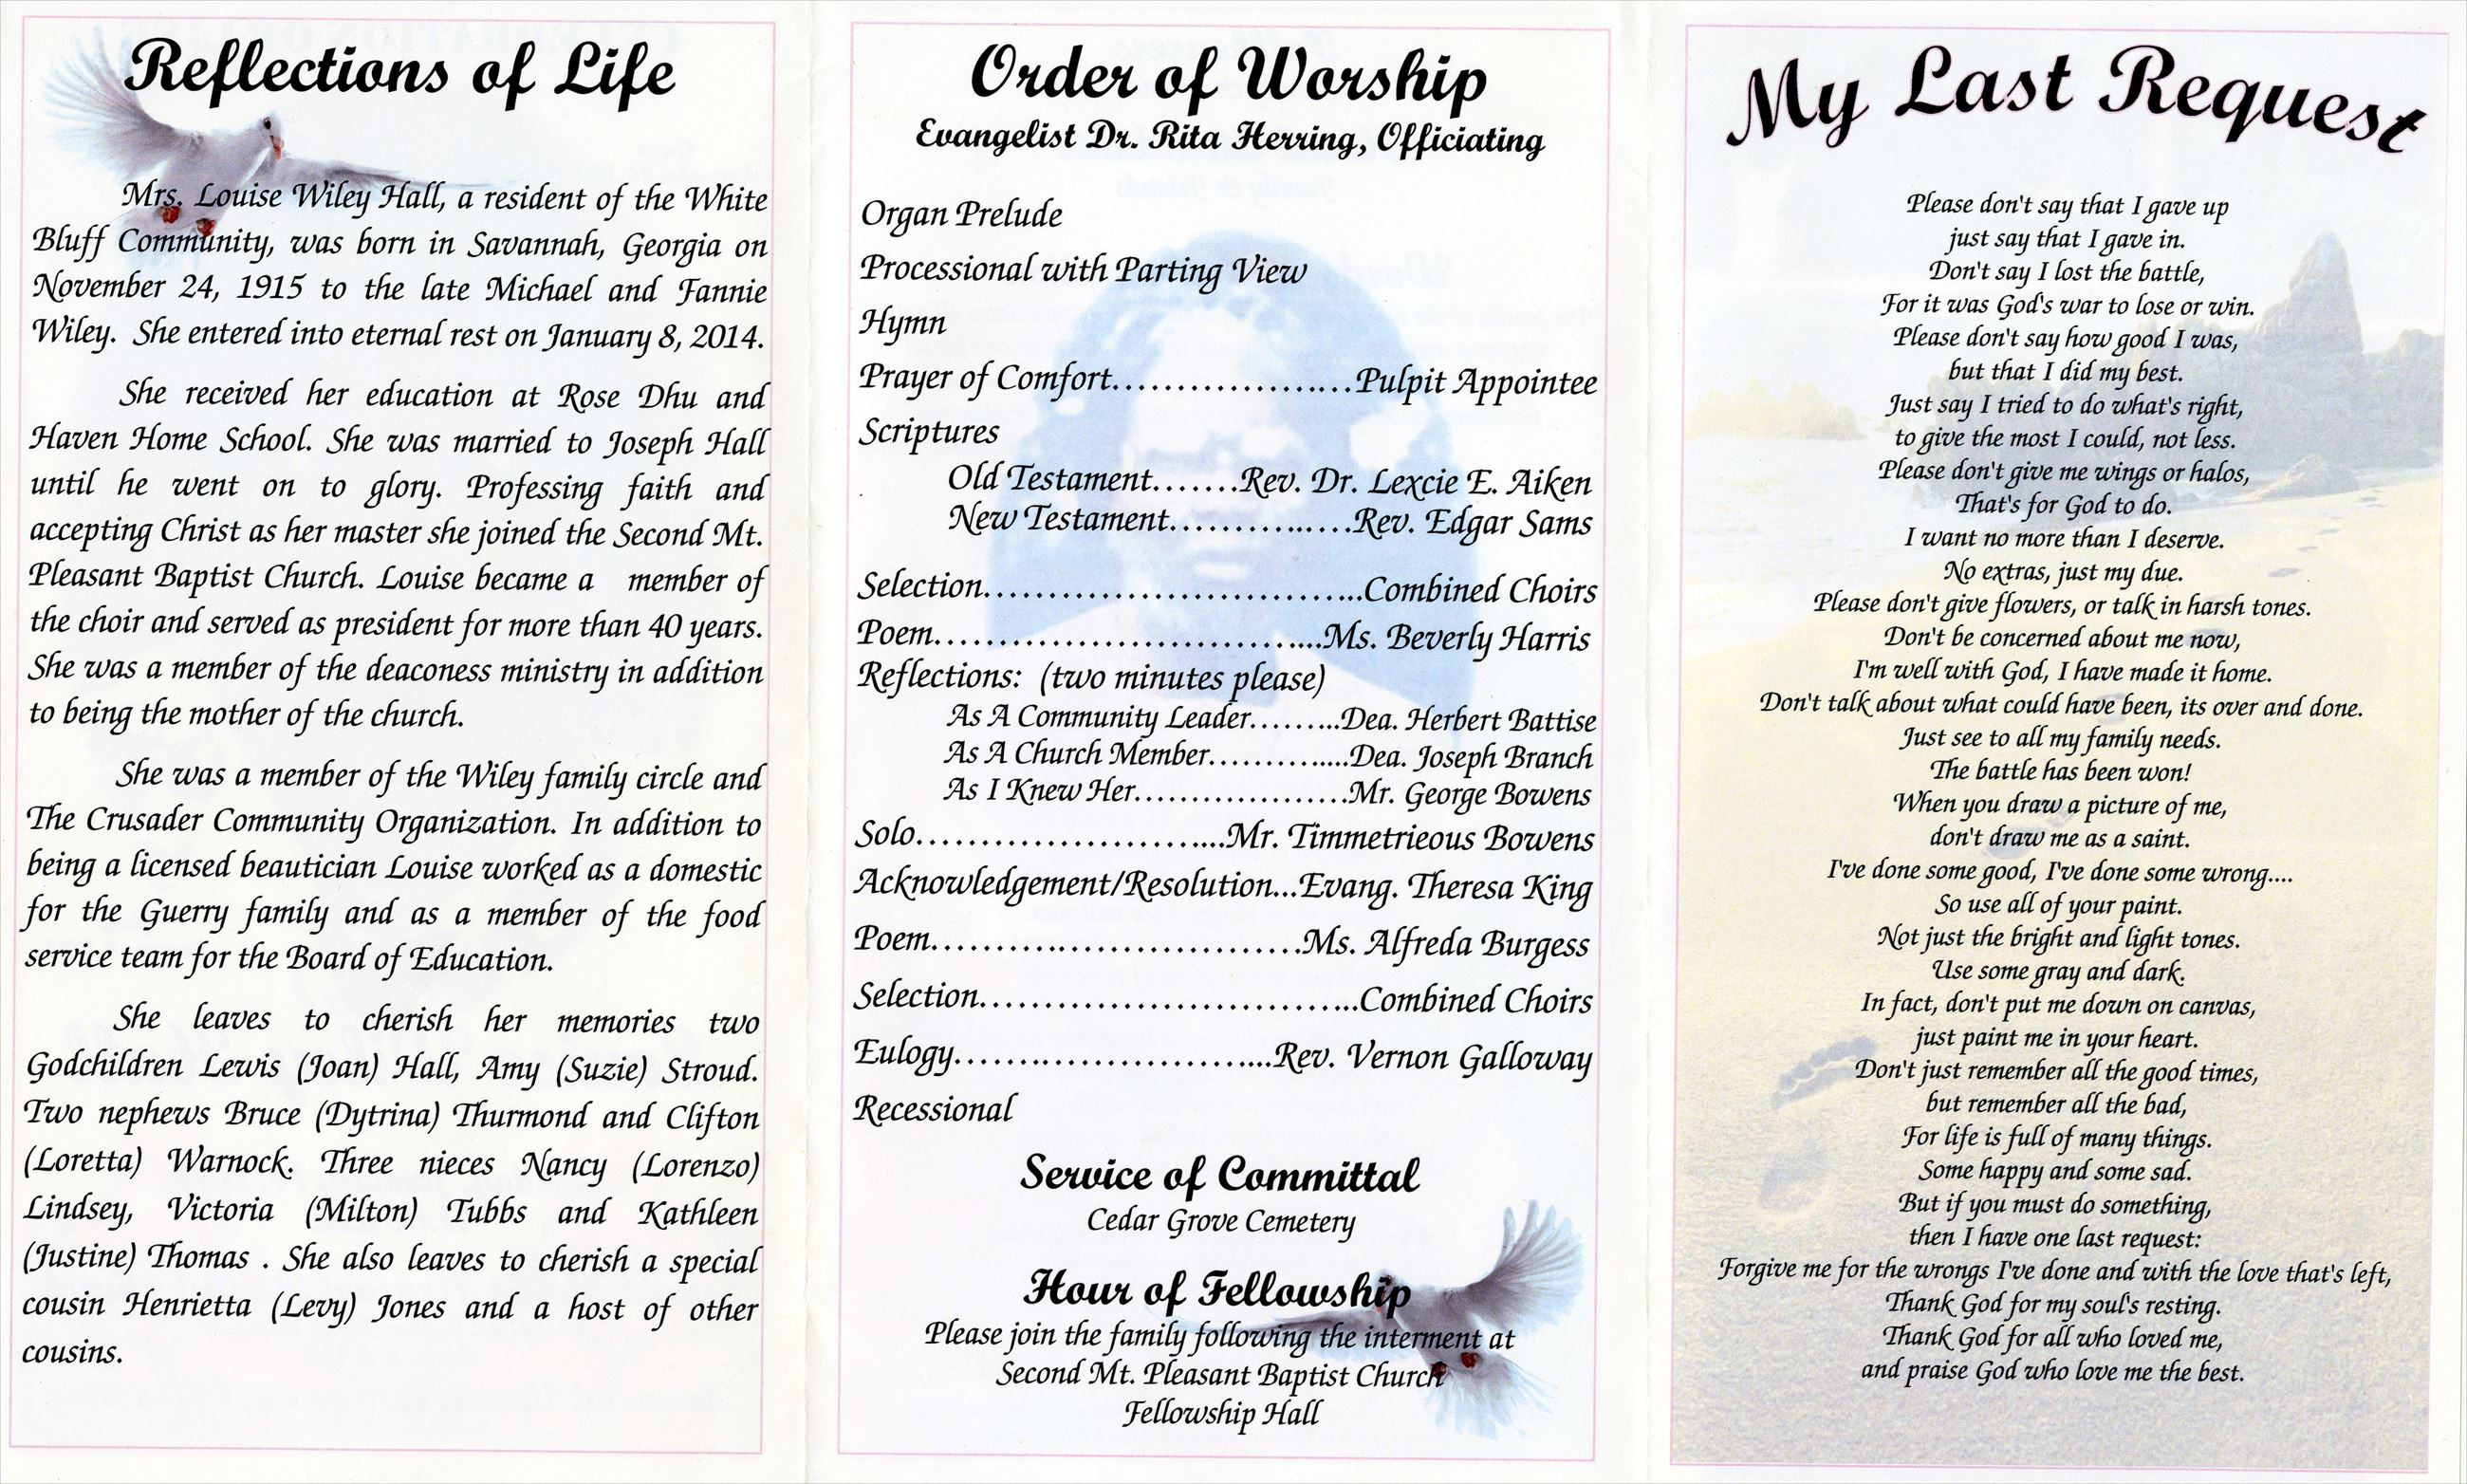 Reflections of Life
Mrs. Louise Wiley Hall, a resident of the White
Bluff Community, was born in Savannah, Georgia on
November 24, 1915 to the late Michael and Fannie
Wiley. She entered into eternal rest on January 8, 2014.
She received her education at Rose Dhu and
Haven Home School. She was married to Joseph Hall
until he went on to glory. Professing faith and
accepting Christ as her master she joined the Second Mt.
Pleasant Baptist Church. Louise became a member of
the choir and served as president for more than 40 years.
She was a member of the deaconess ministry in addition
to being the mother of the church.
She was a member of the Wiley family circle and
The Crusader Community Organization. In addition to
being a licensed beautician Louise worked as a domestic
for the Guerry family and as a member of the food
service team for the Board of Education.
She leaves to cherish her memories two
Godchildren Lewis (Joan) Hall, Amy (Suzie) Stroud.
Two nephews Bruce (Dytrina) Thurmond and Clifton
(Loretta) Warnock. Three nieces Nancy (Lorenzo)
Lindsey, Victoria (Milton) Tubbs and Kathleen
(Justine) Thomas . She also leaves to cherish a special
cousin Henrietta (Levy) Jones and a host of other
cousins.
Order of Worship
Evangelist Dr. Rita Herring, Officiating
Organ Prelude
Processional with Parting View
Hymn
Prayer of Comfort......................Pulpit Appointee
Scriptures
Old Testament.......Rev. Dr. Lexcie E. Aiken
New Testament................Rev. Edgar Sams
Selection.................................Combined Choirs
Poem..................................Ms. Beverly Harris
Reflections: (two minutes please)
As A Community Leader.........Dea. Herbert Battise
As A Church Member..............Dea. Joseph Branch
As I Knew Her....................Mr. George Bowens
Solo............................Mr. Timmetrieous Bowens
Acknowledgement/Resolution...Evang. Theresa King
Poem.................................Ms. Alfreda Burgess
Selection.................................Combined Choirs
Eulogy.............................Rev. Vernon Galloway
Recessional
Service of Committal
Cedar Grove Cemetery
Hour of Fellowship
Please join the family following the interment at
Second Mt. Pleasant Baptist Church
Fellowship Hall
My Last Request
Please don't say that I gave up
just say that I gave in.
Don't say I lost the battle,
For it was God's war to lose or win.
Please don't say how good I was,
but that I did my best.
Just say I tried to do what's right,
to give the most I could, not less.
Please don't give me wings or halos,
That's for God to do.
I want no more than I deserve.
No extras, just my due.
Please don't give flowers, or talk in harsh tones.
Don't be concerned about me now,
I'm well with God, I have made it home.
Don't talk about what could have been, its over and done.
Just see to all my family needs.
The battle has been won!
When you draw a picture of me,
don't draw me as a saint.
I've done some good, I've done some wrong....
So use all of your paint.
Not just the bright and light tones.
Use some gray and dark.
In fact, don't put me down on canvas,
just paint me in your heart.
Don't just remember all the good times,
but remember all the bad,
For life is full of many things.
Some happy and some sad.
But if you must do something,
then I have one last request:
Forgive me for the wrongs I've done and with the love that's left,
Thank God for my soul's resting.
Thank God for all who loved me,
and praise God who love me the best.